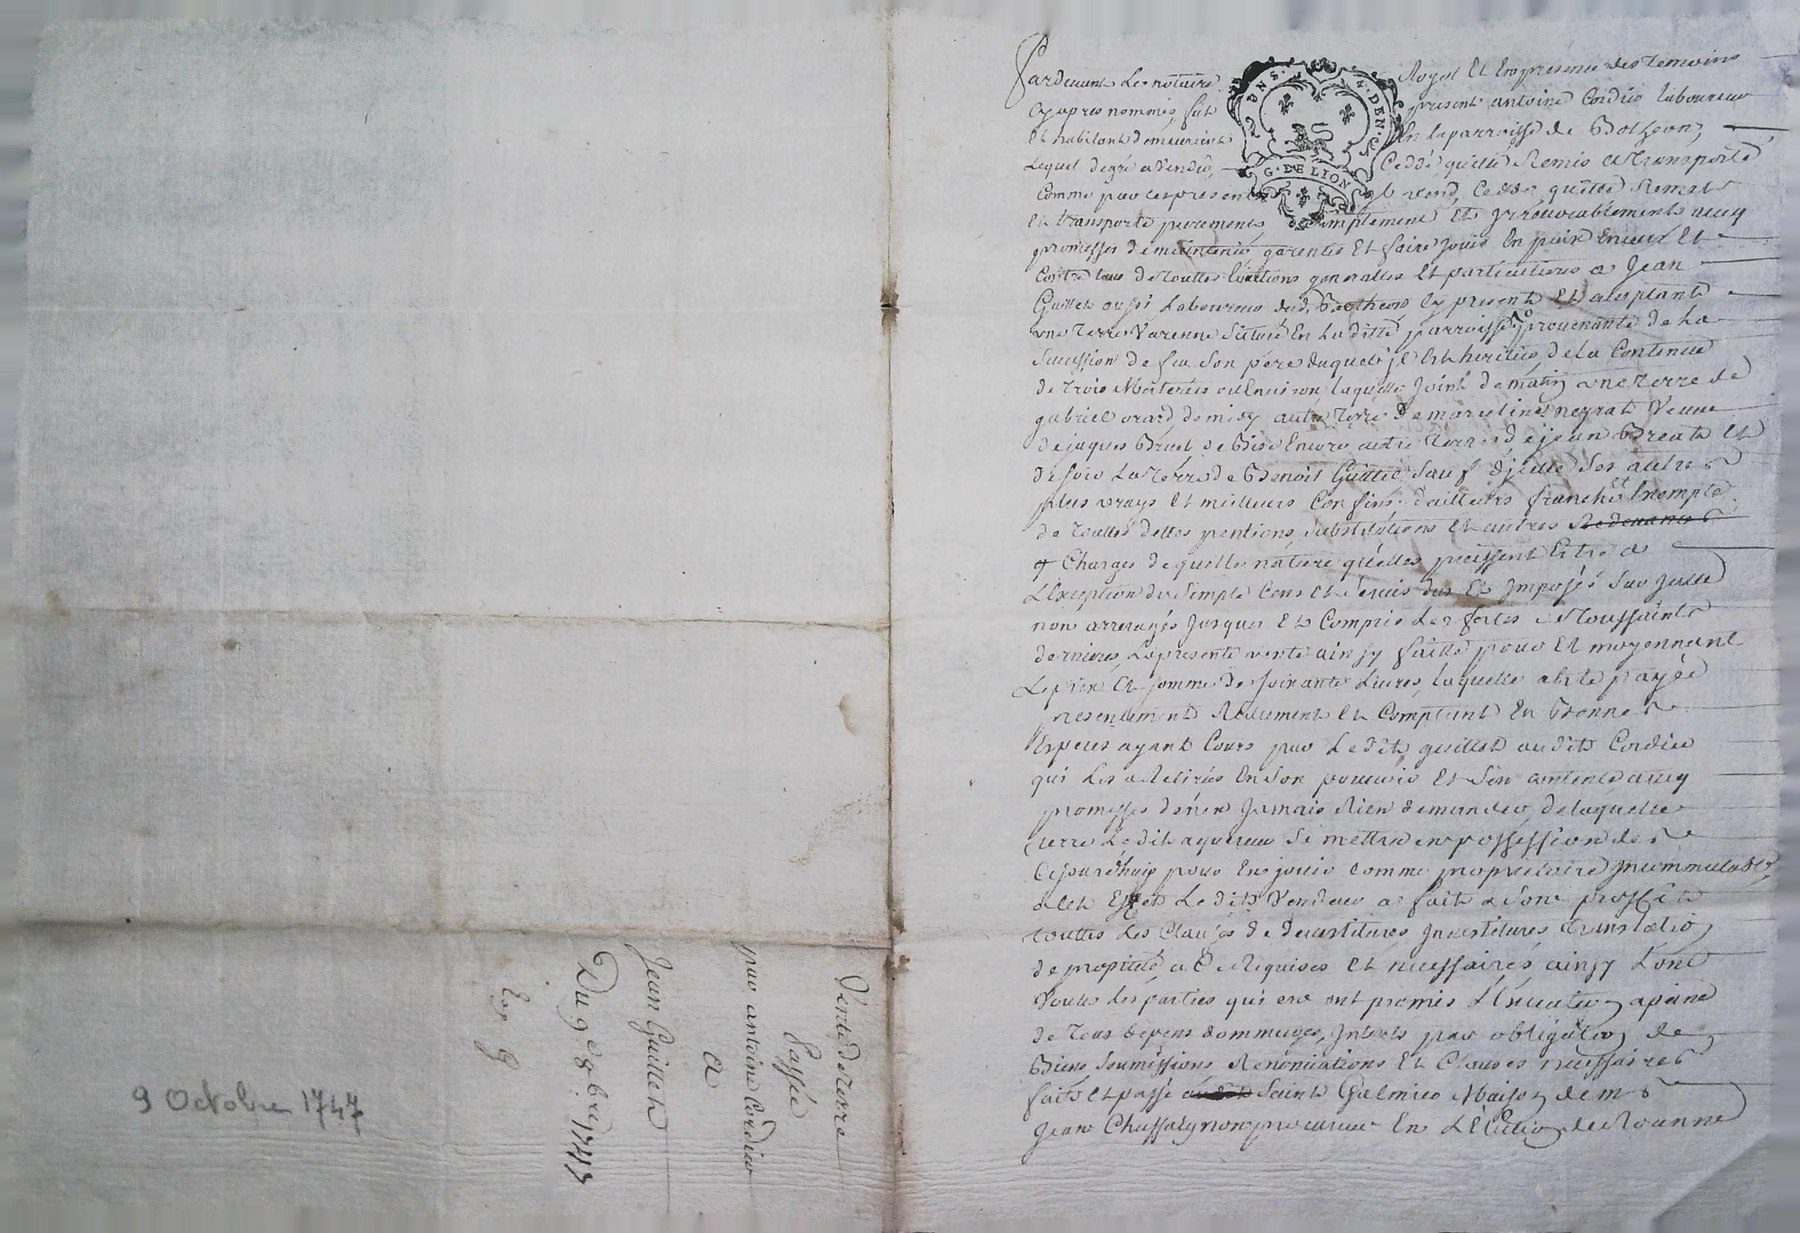 Pardevant Le notaire Royal Et En presence des temoins
Cy apres nommés, fut present antoine Cordier laboureur
Et habitant demeurant En la parroisse de Botheon,
Lequel degré a vendu, Ceddé quitté Remis et transporté
Comme par ces presentes il vend, Cedde quitte Remet
Et transporte purement, Simplement Et Irrevocablement avecq
promesses de maintenir, garentir Et faire jouir En paix Envers Et
Contre tous de touttes Evictions generalles Et particulieres a Jean
Guillet aussi Laboureur dud. Botheon cy present Et aceptant
une terre Varenne Située En La ditte parroisse provenante de La
Sucession de feu Son pere duquel il Est heritier, de La Contenue
de trois Meterées ou Environ, laquelle joint de matin une terre de
gabriel orard, de midy autre terre de marceline neyrat Veuve
de jaques Bruel de Bise Encore autre terre de jean Breat Et
de soir La terre de Benoit Guillet Sauf d'jcelle Ses autres
plus vrays Et meilleurs Confins, d'ailleurs franche et Exempte
de touttes dettes pentions, substitutions Et autres Redevances
Charges de quelle nature qu'elles puissent Estre a
L'Exception du Simple Cens Et Servis dus Et Imposés Sur jcelle
non arreragés jusques Et Compris Les festes Toussaints
dernieres, La presente vente ainsy faitte pour Et moyennant
Le prix Et somme de soixante Livres, laquelle a Eté payée
presentement Réellement Et Comptant En Bonnes
Especes ayant Cours par Le dit guillet audit Cordier
qui Les a Retirés En Son pouvoir Et S'en contente avecq
promesses de n'en jamais Rien demander, de laquelle
terre Le dit aquereur Se mettra en possession dés
Cejourd'huy pour En jouir comme propriétaire jncommutable
a Cet Effet Le dit Vendeur a fait a Son proffit
touttes Les Clauses de devestitures, Investitures, translation
de propriété a Ce Requises Et necessaires ainsy L'ont
Voulu Les parties qui en ont promis L'execution a peine
de tous depens dommages, Interets par obligation de
Biens Soumissions, Renonciations Et Clauses necessaires
fait Et passé Saint Galmier Maison de mr
jean Chassaignon procureur En L'Election de Roanne
G. DE LION
Vente de terre
Passée
par antoine Cordier
a
Jean Guillet
Du 9e 8bre 1747
9 Octobre 1747